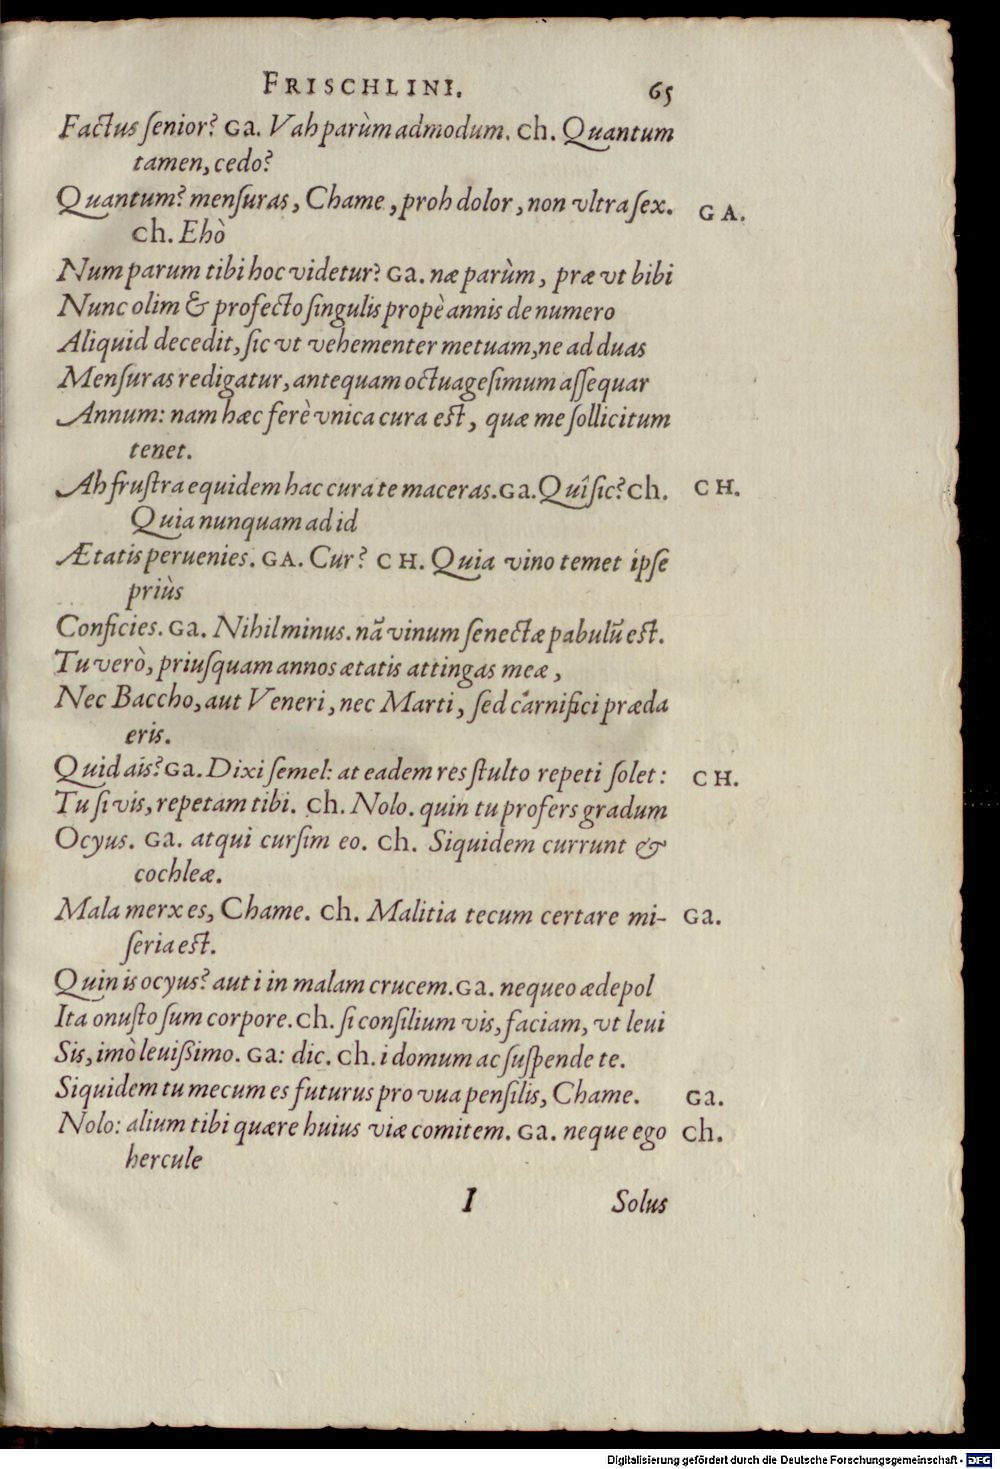 FRISCHLINI. 65
Factus ſenior? Ga. Vah parùm admodum. Ch. Quantum
tamen, cedo?
Quantum? menſuras, Chame, proh dolor, non vltra ſex. GA.
Ch. Ehò
Num parum tibi hoc videtur? Ga. næ parùm, præ vt bibi
Nunc olim & profecto ſingulis propè annis de numero
Aliquid decedit, ſic vt vehementer metuam, ne ad duas
Menſuras redigatur, antequam octuageſimum aſſequar
Annum: nam hæc ferè vnica cura est, quæ me ſollicitum
tenet.
Ah fruſtra equidem hac cura te maceras. Ga. Quî ſic? Ch. CH.
Quia nunquam ad id
Ætatis peruenies. GA. Cur? CH. Quia vino temet ipſe
priùs
Conficies. Ga. Nihil minus. nã vinum ſenectæ pabulũ est.
Tu verò, priuſquam annos ætatis attingas meæ,
Nec Baccho, aut Veneri, nec Marti, ſed carnifici præda
eris.
Quid ais? Ga. Dixi ſemel: at eadem res ſtulto repeti ſolet: CH.
Tu ſi vis, repetam tibi. Ch. Nolo. quin tu profers gradum
Ocyus. Ga. atqui curſim eo. Ch. Siquidem currunt &
cochleæ.
Mala merx es, Chame. Ch. Malitia tecum certare mi- Ga.
ſeria est.
Quin is ocyus? aut i in malam crucem. Ga. nequeo ædepol
Ita onuſto ſum corpore. Ch. ſi conſilium vis, faciam, vt leui
Sis, imò leuißimo. Ga: dic. Ch. i domum ac ſuſpende te.
Siquidem tu mecum es futurus pro vua penſilis, Chame. Ga.
Nolo: alium tibi quære huius viæ comitem. Ga. neque ego Ch.
hercule
I Solus
Digitalisierung gefördert durch die Deutsche Forschungsgemeinschaft - DFG